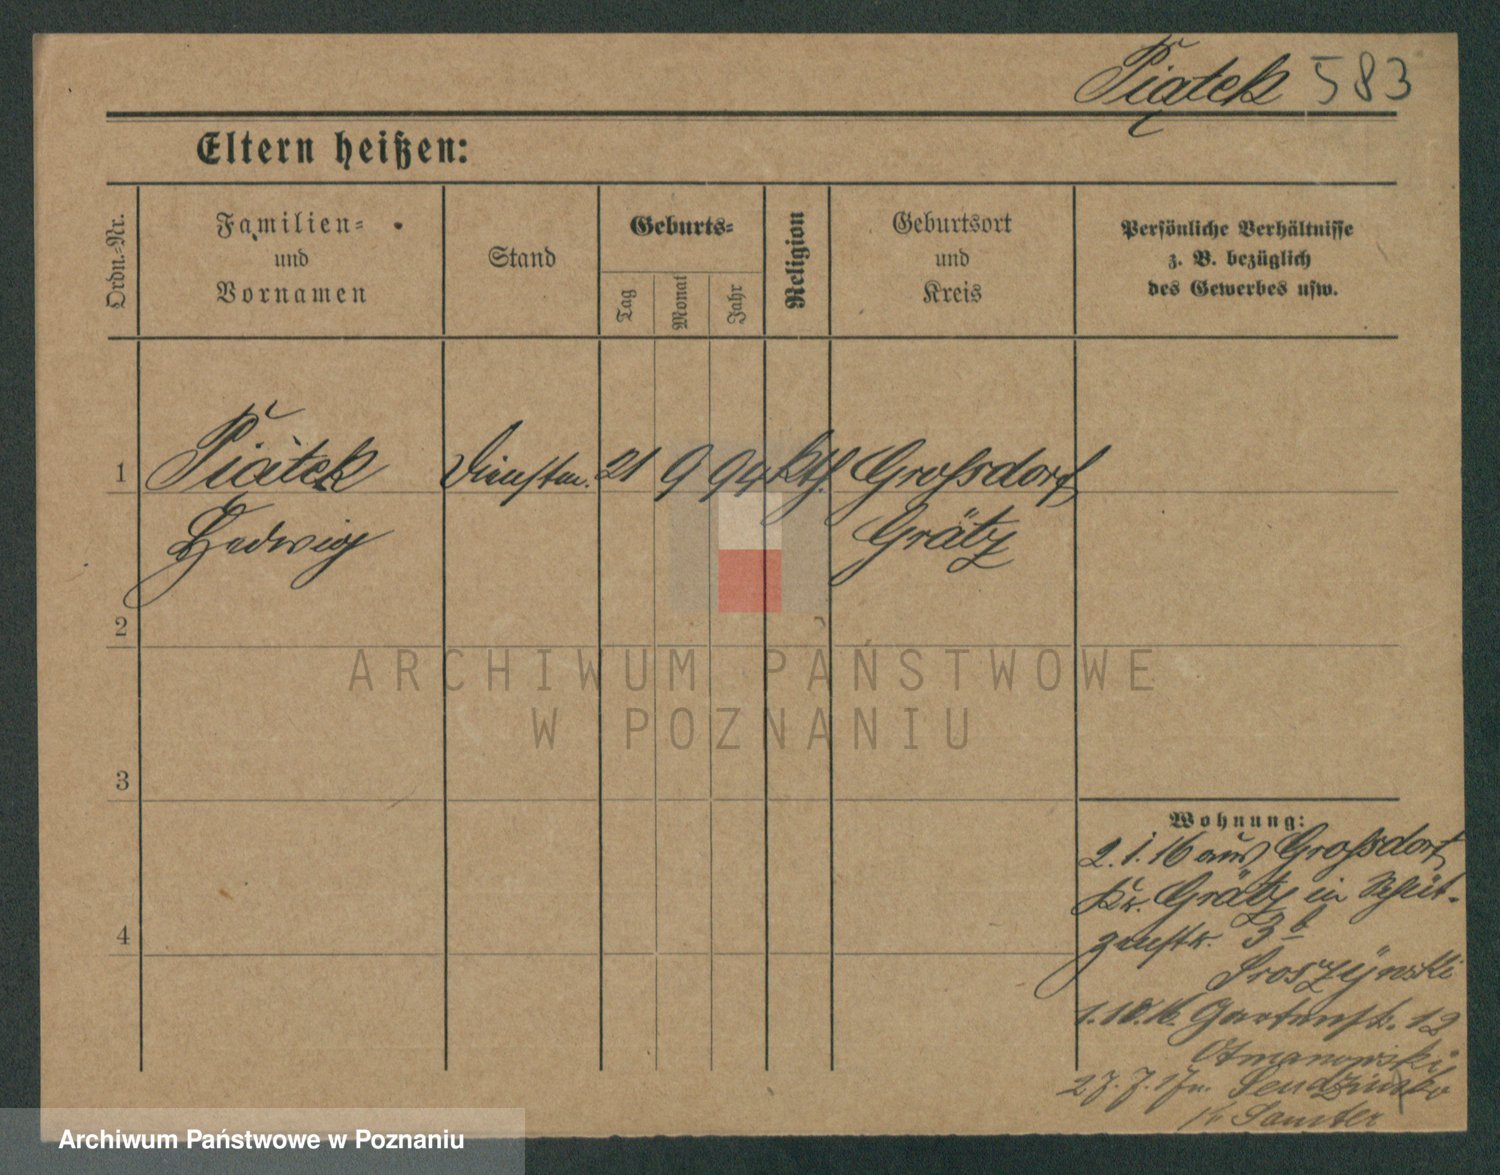 Piątek 583
Eltern heißen:
Ordn.-Nr.
Familien-
und
Vornamen
Stand
Geburts-
Tag
Monat
Jahr
Religion
Geburtsort
und
Kreis
Persönliche Verhältnisse
z. B. bezüglich
des Gewerbes usw.
1 Piątek Dienstm. 21 9 94 Kth. Grossdorf
Hedwig Grätz
2
3
4
ARCHIWUM PAŃSTWOWE
W POZNANIU
Wohnung:
2.1.16 aus Grossdorf
Kr. Grätz in Schüt-
zenstr. 3b
1.10.16. Gartenstr. 12
Otmanowski
27.7.17 n.
Kr Samter
Archiwum Państwowe w Poznaniu